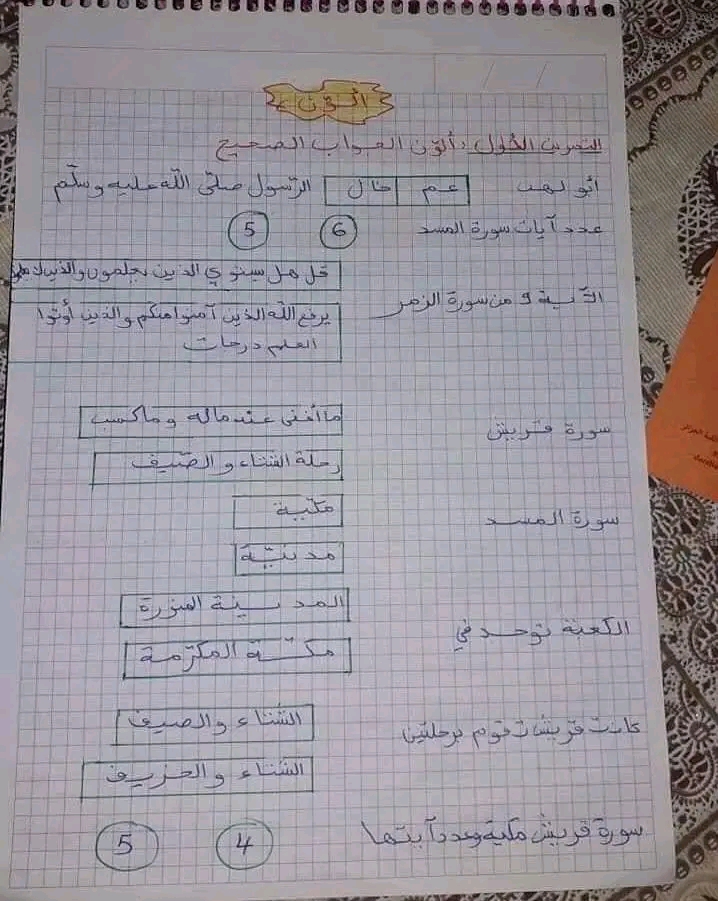 القرآن
التمرين الأول: ألون الجواب الصحيح
أبو لهب عم خال الرّسول صلّى الله عليه وسلّم
عدد آيات سورة المسد 6 5
قل هل يستوي الذين يعلمون والذين لا
الآية 9 من سورة الزمر
يرفع الله الذين آمنوا منكم والذين أوتوا
العلم درجات
سورة قريش
ما أغنى عنه ماله وما كسب
رحلة الشتاء والصّيف
سورة المسد
مكّية
مدنيّة
الكعبة توجد في
المدينة المنوّرة
مكّة المكرّمة
كانت قريش تقوم برحلتين
الشتاء والصيف
الشتاء والخريف
سورة قريش مكية وعدد آيتها
4 5